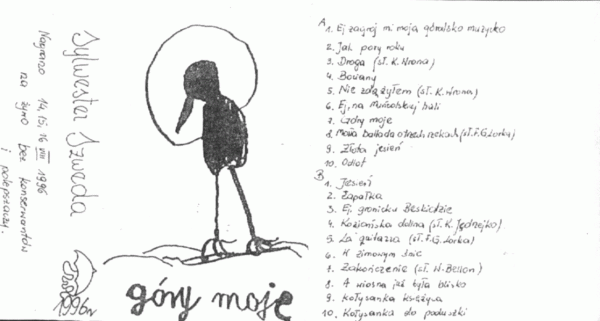 Sylwester Szweda
Nagrano 14, 15, 16 VIII 1996
na żywo bez konserwantów
i polepszaczy.
1996r
góry moje
A 1. Ej zagraj mi moja góralsko muzyko
2. Jak pory roku
3. Droga (sł. K. Wrona)
4. Bociany
5. Nie zdążyłem (sł. K. Wrona)
6. Ej, na Muńcolskiej hali
7. Czary moje
8. Mała ballada o trzech rzekach (sł. F.G. Lorka)
9. Złota jesień
10. Odlot
B 1. Jesień
2. Zapałka
3. Ej groniczku Beskidzie
4. Koziańska dolina (sł. K. Jędrzejko)
5. La guitarra (sł. F.G. Lorka)
6. W zimowym śnie
7. Zakończenie (sł. W. Bellon)
8. A wiosna już była blisko
9. Kołysanka księżyca
10. Kołysanka do poduszki